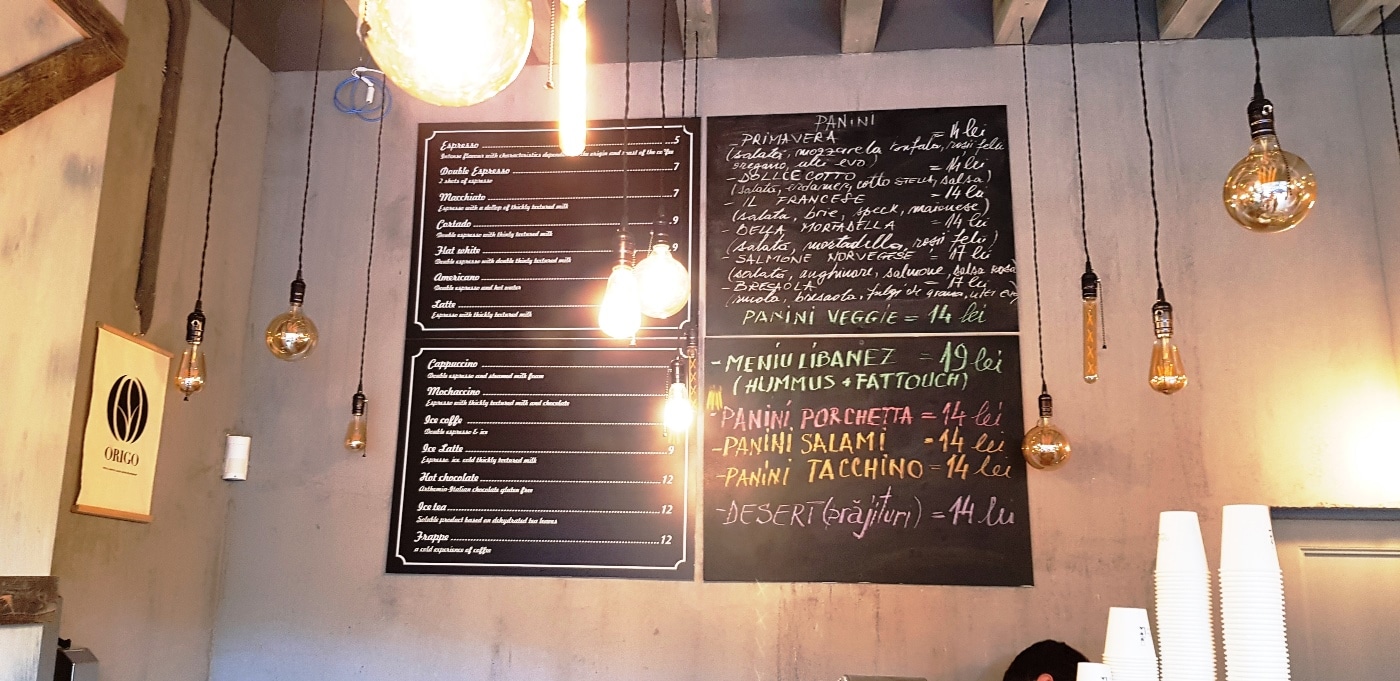 ORIGO
Espresso 5
Intense flavour with characteristics the origin and roast of the
Double Espresso 7
2 shots of espresso
Macchiato 7
Espresso with a dollop of thickly textured milk
Cortado 9
Double espresso with thinly textured milk
Flat white 9
Double espresso with double thinly textured milk
Americano
Double espresso and hot water
Latte
Espresso with thickly textured milk
Cappuccino
Double espresso and steamed milk foam
Mochaccino
Espresso with thickly textured milk and chocolate
Ice coffe
Double espresso & ice
Ice Latte 9
Espresso, ice, cold thickly textured milk
Hot chocolate 12
Arthemia-Italian chocolate gluten free
Ice tea 12
Soluble product based on dehydrated tea leaves
Frappe 12
a cold experience of coffee
PANINI
-PRIMAVERA = 14 lei
(salată, mozzarela rosii felii
oregano, ulei evo)
= 14 lei
(salată, cotto STELLA, salsa)
- IL FRANCESE - 14 lei
(salata, brie, speck, maionese)
- BELLA MORTADELLA = 14 lei
(salată, mortadella, rosii felii)
- SALMONE NORVEGESE = 17 lei
(salata, anghinare, salmone, salsa rosa
- BRESAOLA = 17 lei
bresaola, fulgi de grana, ulei evo
PANINI VEGGIE = 14 lei
- MENIU LIBANEZ = 19 lei
(HUMMUS + FATTOUCH)
- PANINI PORCHETTA = 14 lei
- PANINI SALAMI - 14 lei
- PANINI TACCHINO = 14 lei
- DESERT (prăjituri) = 14 lei